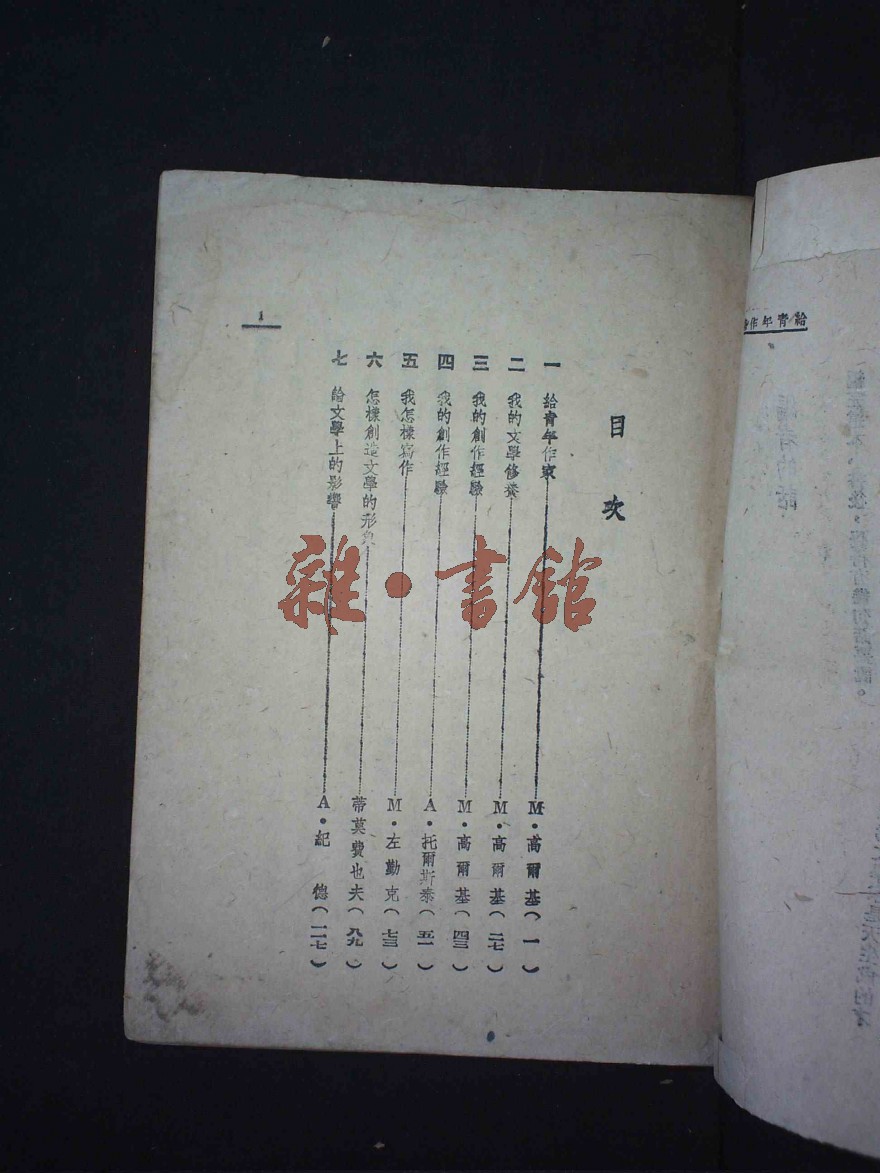 給青年作
目次
一 給青年作家 M・高爾基(一)
二 我的文學修養 M・高爾基(二七)
三 我的創作經驗 M・高爾基(四三)
四 我的創作經驗 A・托爾斯泰(五一)
五 我怎樣寫作 M・左勤克(七三)
六 怎樣創造文學的形象 蒂莫費也夫(九九)
七 論文學上的影響 A・紀德(一二七)
1
雜・書館